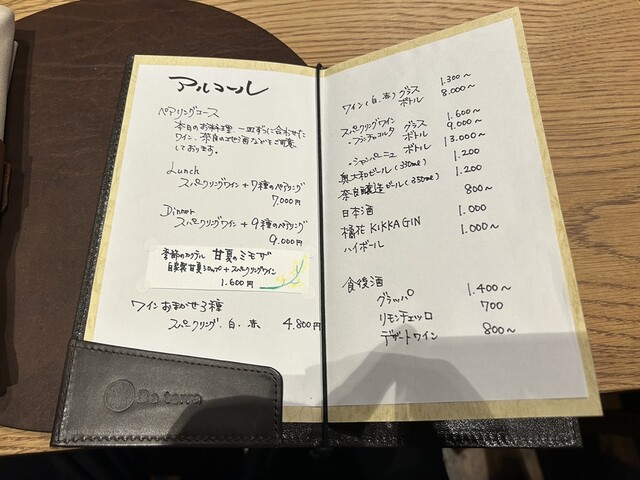 アルコール
ペアリングコース
本日のお料理、一皿ずつに合わせた
ワイン、奈良の地酒などをご用意
しております。
Lunch
スパークリングワイン+7種のペアリング
7,000円
Dinner
スパークリングワイン+9種のペアリング
9,000円
季節のカクテル 甘夏のミモザ
自家製甘夏シロップ+スパークリングワイン
1,600円
ワインおまかせ3種
スパークリング、白、赤 4,800円
ワイン(白、赤) グラス 1.300〜
ボトル 8.000〜
スパークリングワイン
・フランチャコルタ グラス 1.600〜
ボトル 9.000〜
・シャンパーニュ ボトル 13.000〜
奥大和ビール(330ml) 1.200
奈良醸造ビール(350ml) 1.200
日本酒 800〜
橘花 KIKKA GIN 1.000
ハイボール 1.000〜
食後酒
グラッパ 1.400〜
リモンチェッロ 700
デザートワイン 800〜